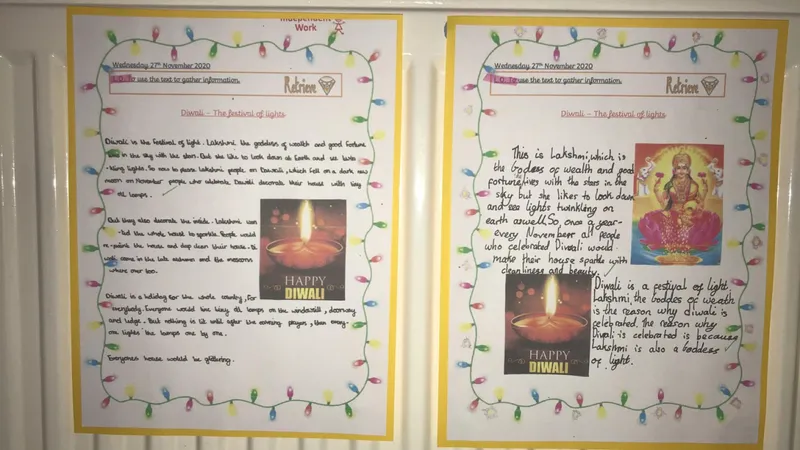 Independent
Work
Wednesday 27th November 2020
L.O. To use the text to gather information.
Retrieve
Diwali – The festival of lights
Diwali is the Festival of light. Lakshmi the goddess of wealth and good fortune
live in the sky with the stars. But she like to look down at Earth and see
-kling lights. So now to please Lakshmi people on Dawali, which fell on a dark new
moon on November people who celebrate Dawali decorate their house with tiny
oil lamps.
But they also decorate the inside. Lakshmi wan
-ted the whole house to sparkle. People would
re-paint the house and deep clean their house.
come in the late autumn and the
where over too.
HAPPY
DIWALI
Diwali is a holiday for the whole country, for
everybody. Everyone would line tiny oil lamps on the windowsill, doorway
and ledge. But nothing is lit until after the evening prayer, then every-
one lights the lamps one by one.
Everyones house would be glittering.
Wednesday 27th November 2020
L.O. To use the text to gather information.
Retrieve
Diwali – The festival of lights
This is Lakshmi, which is
the Goddess of wealth and good
fortune, lives with the stars in the
sky but she likes to look down
and see lights twinkling on
earth aswell. So, once a year-
every November all people
who celebrated Diwali would
make their house sparkle with
cleanliness and beauty.
HAPPY
DIWALI
Diwali is a festival of light.
Lakshmi, the Goddes of weath
is the reason why diwali is
celebrated. The reason why
Diwali is celebrated is because
Lakshmi is also a Goddess
of light.